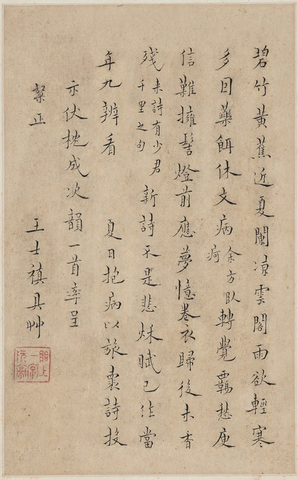 碧竹黃蕉近夏闌涼雲閣雨欲輕寒
多因藥餌休文病余方臥疴轉覺羈愁庾
信難擁髻燈前應夢憶卷衣歸後未香
殘來詩有少君千里之句新詩不是悲秌賦已作當
年九辨看 夏日抱病以旅詩投
示伏枕成次韻一首率呈
粲正 王士祺具艸